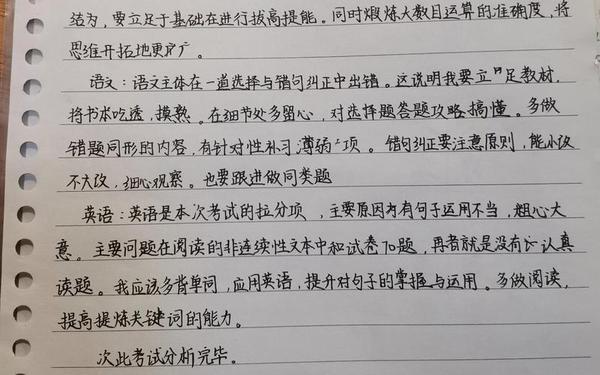 结为，要立足于基础在进行拔高提能。同时煅炼大数目运算的准确度，将
思维开拓地更广广。
语文：语文主体在一道选择与错句纠正中出错。这说明我要立足教材，
将书本吃透，摸熟。在细节处多留心，对选择题答题攻略搞懂。多做
错题同形的内容，有针对性补习薄弱项。错句纠正要注意原则，能小改
不大改，细心观察。也要跟进做同类题
英语：英语是本次考试的拉分项，主要原因为有句子运用不当，粗心大
意。主要问题在阅读的非连续性文本中和试卷70题，再者就是没有认真
读题。我应该多背单词，应用英语，提升对句子的掌握与运用。多做阅读，
提高提炼关键词的能力。
次此考试分析完毕。